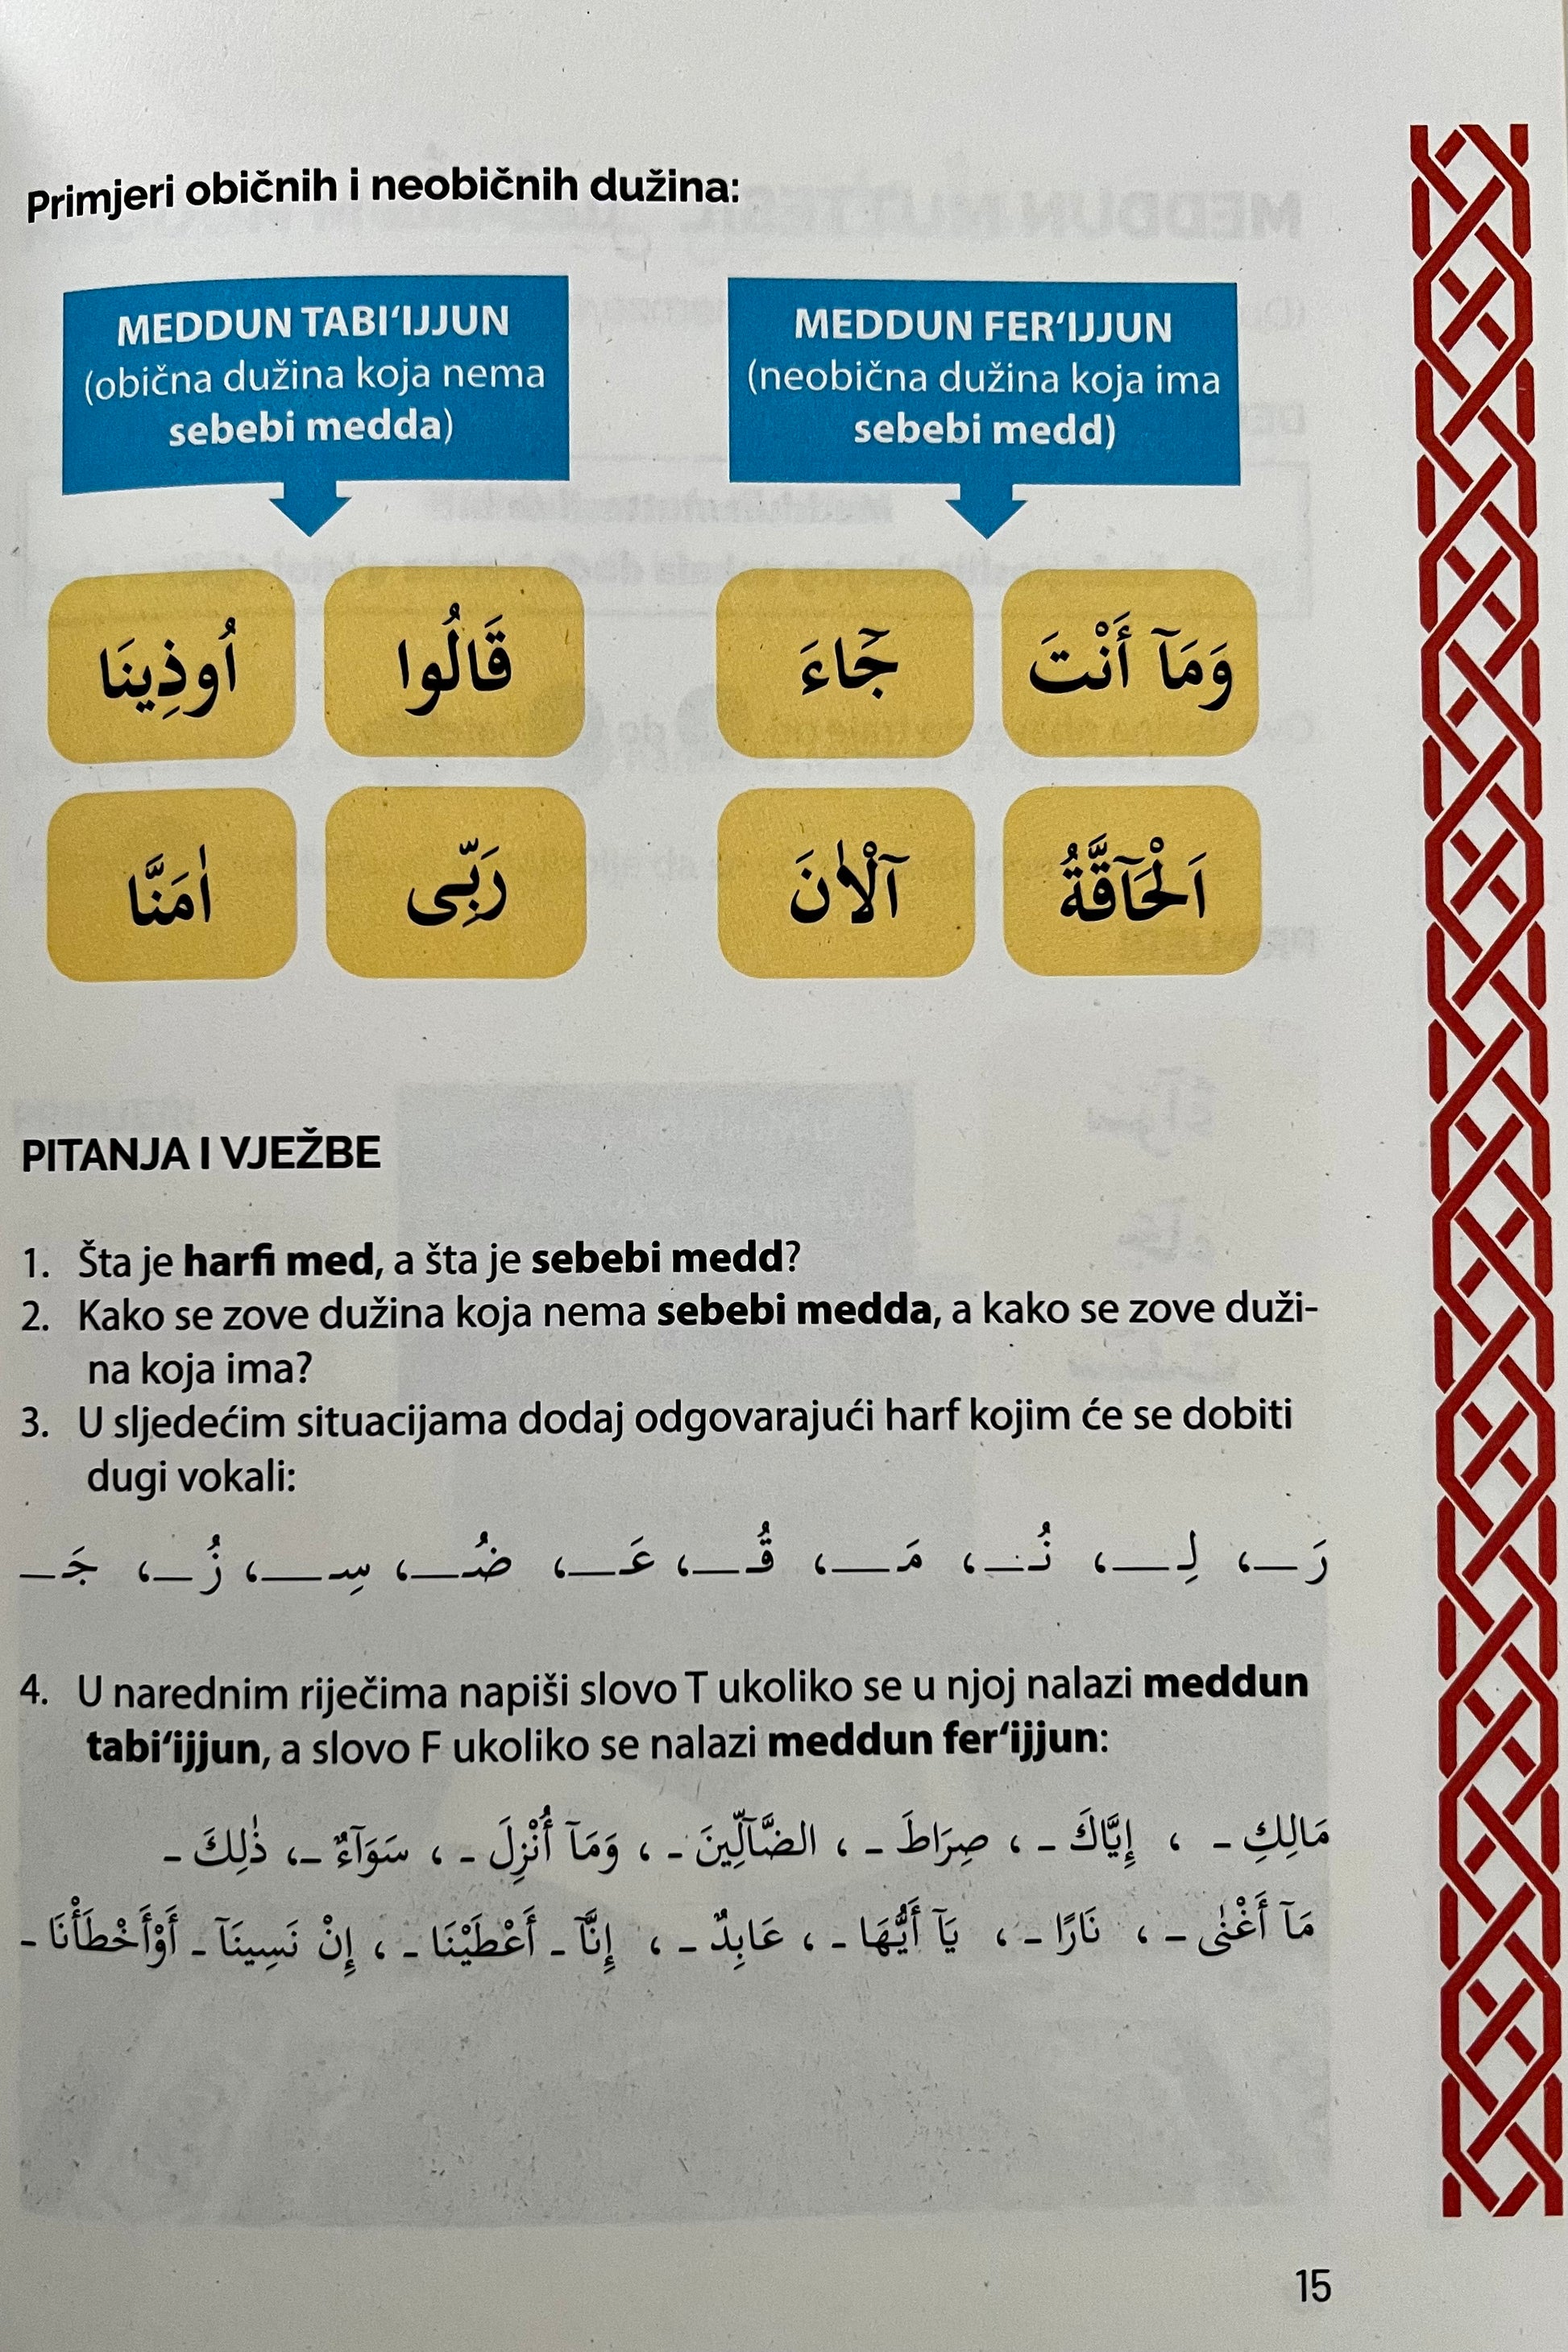 Primjeri običnih i neobičnih dužina:
MEDDUN TABI‘IJJUN
(obična dužina koja nema
sebebi medda)
MEDDUN FER‘IJJUN
(neobična dužina koja ima
sebebi medd)
اُوذِينَا
قَالُوا
جَٓاءَ
وَمَآ أَنْتَ
اٰمَنَّا
رَبِّى
آلْاٰنَ
اَلْحَآقَّةُ
PITANJA I VJEŽBE
1. Šta je harfi med, a šta je sebebi medd?
2. Kako se zove dužina koja nema sebebi medda, a kako se zove duži-
na koja ima?
3. U sljedećim situacijama dodaj odgovarajući harf kojim će se dobiti
dugi vokali:
رَ __، لِـ __، نُـ __، مَـ __، قُـ __، عَـ __، ضُـ __، سِـ __، زُ __، جَـ __
4. U narednim riječima napiši slovo T ukoliko se u njoj nalazi meddun
tabi‘ijjun, a slovo F ukoliko se nalazi meddun fer‘ijjun:
مَالِكِ - ، إِيَّاكَ - ، صِرَاطَ - ، الضَّآلِّينَ - ، وَمَآ أُنْزِلَ - ، سَوَآءٌ -، ذٰلِكَ -
مَآ أَغْنٰى - ، نَارًا - ، يَآ أَيُّهَا - ، عَابِدٌ - ، إِنَّآ - أَعْطَيْنَا - ، إِنْ نَسِينَآ - أَوْأَخْطَأْنَا -
15